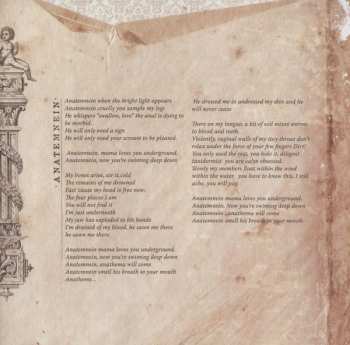 'ANATEMNEIN'
Anatemnein when the bright light appears
Anatemnein cruelly you sample my legs
He whispers "swallow, love" the anal is dying to
be morbid.
He will only need a sign
He will only need your accent to be pleased.
Anatemnein, mama loves you underground.
Anatemnein, now you're swiming deep down
My bones arise, air is cold
The remains of me drowned
East 'cause my head is free now.
The four places I am
You will not find it
I'm just underneath
My jaw has exploded in his hands
I'm drained of my blood, he sawn me there
he sawn me there.
Anatemnein mama loves you underground.
Anatemnein, now you're swiming deep down
Anatemnein, anathema will come
Anatemnein smell his breath in your mouth
Anathema...
He dressed me in undressed my skin and he
will never cease
There on my tongue, a bit of soil mixed worms
to blood and teeth.
Violently, vaginal walls of my tiny throat don't
relax under the force of your few fingers Dirt!
You only used the real, you hide it, diligent
taxidermist you are calm obsessed.
Slowly my members float within the wind
within the water, you have to know this, I still
ache, you will pay
Anatemnein mama loves you underground.
Anatemnein, Now you're swiming deep down
Anatemnein, anathema will come
Anatemnein smell his breath in your mouth